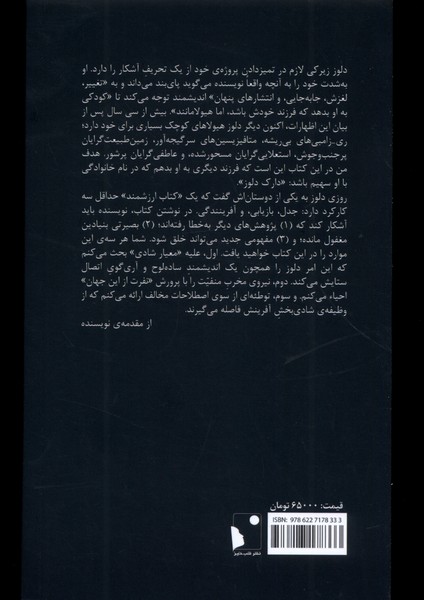 دلوز زیرکی لازم در تمیزدادن پروژه‌ی خود از یک تحریفِ آشکار را دارد. او
به‌شدت خود را به آنچه واقعاً نویسنده می‌گوید پای‌بند می‌داند و به «تغییر،
لغزش، جابه‌جایی، و انتشارهای پنهان» اندیشمند توجه می‌کند تا «کودکی
به او بدهد که فرزند خودش باشد، اما هیولامانند». بیش از سی سال پس از
بیان این اظهارات، اکنون دیگر دلوز هیولاهای کوچک بسیاری برای خود دارد؛
ری‌زامبی‌های بی‌ریشه، متافیزیسین‌های سرگیجه‌آور، زمین‌طبیعت‌گرایان
پرجنب‌وجوش، استعلایی‌گرایان مسحورشده، و عاطفی‌گرایان پرشور. هدف
من در این کتاب این است که فرزند دیگری به او بدهم که در نام خانوادگی
با او سهیم باشد: «دارک دلوز».
روزی دلوز به یکی از دوستان‌اش گفت که یک «کتاب ارزشمند» حداقل سه
کارکرد دارد: جدل، بازیابی، و آفرینندگی. در نوشتن کتاب، نویسنده باید
آشکار کند که (۱) پژوهش‌های دیگر به‌خطا رفته‌اند؛ (۲) بصیرتی بنیادین
مغفول مانده؛ و (۳) مفهومی جدید می‌تواند خلق شود. شما هر سه‌ی این
موارد را در این کتاب خواهید یافت. اول، علیه «معیار شادی» بحث می‌کنم
که این امر دلوز را همچون یک اندیشمندِ ساده‌لوح و آری‌گویِ اتصال
ستایش می‌کند. دوم، نیروی مخرب منفیّت را با پرورش «نفرت از این جهان»
احیاء می‌کنم. و سوم، توطئه‌ای از سوی اصطلاحات مخالف ارائه می‌کنم که از
وظیفه‌ی شادی‌بخشِ آفرینش فاصله می‌گیرند.
از مقدمه‌ی نویسنده
قیمت: ۶۵۰۰۰ تومان
ISBN: 978 622 7178 33 3